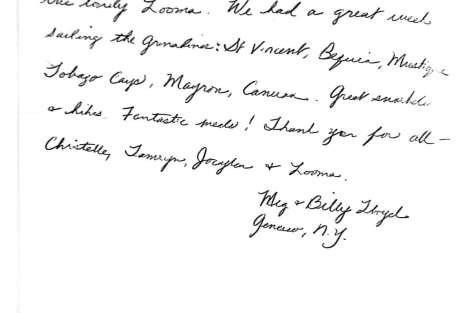 the lovely Looma. We had a great week
sailing the Grenadines: St Vincent, Bequia, Mustique
Tobago Cays, Mayrou, Canuan. Great snorkel
& hikes. Fantastic meals! Thank you for all –
Christelle, Tamryn, Jocylen & Looma.
Meg & Billy Lloyd
Geneseo, N.Y.